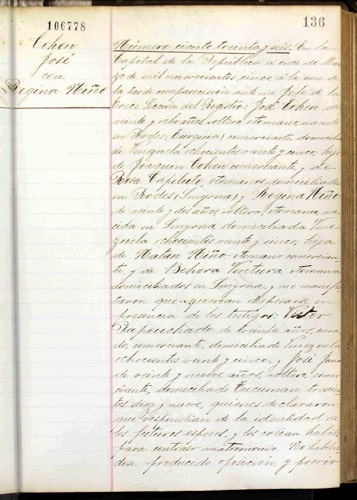 106778
136
Cohen
José
con
Regina Niño
Número ciento treinta y seis. En la
Capital de la República a once de Mar
zo de mil novecientos cinco a la una de
la tarde comparecieron ante mi Jefe de la
Sección del Registro: José Cohen, de
veinte y ocho años, soltero, otomano, nacido
en Rodes (Turquía) comerciante, domicilia
do Venezuela ochocientos veinte y cinco, hijo
de Joaquin Cohen comerciante, y de
Rosa Capelleto, otomanos, domiciliados
en Rodes (Smyrna) y Regina Niño
de veinte y dos años, soltera, otomana, na
cida en Smyrna, domiciliada Vene
zuela ochocientos veinte y cinco, hija
de Natan Niño otomano comercian
te, y de Behora Ventura otomana
domiciliados en Smyrna, y me manifes
taron que querian desposarse en
presencia de los testigos: Victor
de treinta años, casa
do, comerciante, domiciliado Venezuela
ochocientos veinte y cinco, y José
de veinte y nueve años, soltero, comer
ciante, domiciliado Tucuman trescien
tos diez y nueve, quienes declararon
que respondian de la identidad de
los futuros esposos, y los creian habiles
para contraer matrimonio. No habien
dose producido oposición y previo